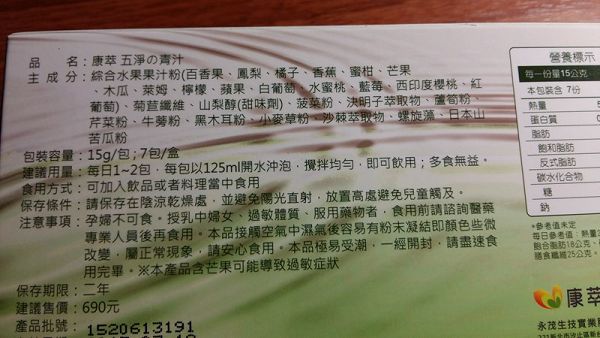 品　　名：康萃 五淨の青汁
主 成 分：綜合水果果汁粉(百香果、鳳梨、橘子、香蕉、蜜柑、芒果
、木瓜、萊姆、檸檬、蘋果、白葡萄、水蜜桃、藍莓、西印度櫻桃、紅
葡萄)、菊苣纖維、山梨醇(甜味劑)、菠菜粉、決明子萃取物、蘆筍粉、
芹菜粉、牛蒡粉、黑木耳粉、小麥草粉、沙棘萃取物、螺旋藻、日本山
苦瓜粉
包裝容量：15g/包；7包/盒
建議用量：每日1~2包，每包以125ml開水沖泡，攪拌均勻，即可飲用；多食無益。
食用方式：可加入飲品或者料理當中食用
保存條件：請保存在陰涼乾燥處，並避免陽光直射，放置高處避免兒童觸及。
注意事項：孕婦不可食。授乳中婦女、過敏體質、服用藥物者，食用前請諮詢醫藥
專業人員後再食用。本品接觸空氣中濕氣後容易有粉末凝結即顏色些微
改變，屬正常現象，請安心食用。本品極易受潮，一經開封，請盡速食
用完畢。※本產品含芒果可能導致過敏症狀
保存期限：二年
建議售價：690元
產品批號：1520613191
營養標示
每一份量15公克
本包裝含 7份
熱量
蛋白質
脂肪
飽和脂肪
反式脂肪
碳水化合物
糖
鈉
*參考值未定
每日參考值：熱量
飽和脂肪18公克
膳食纖維25公克
康萃
永茂生技實業